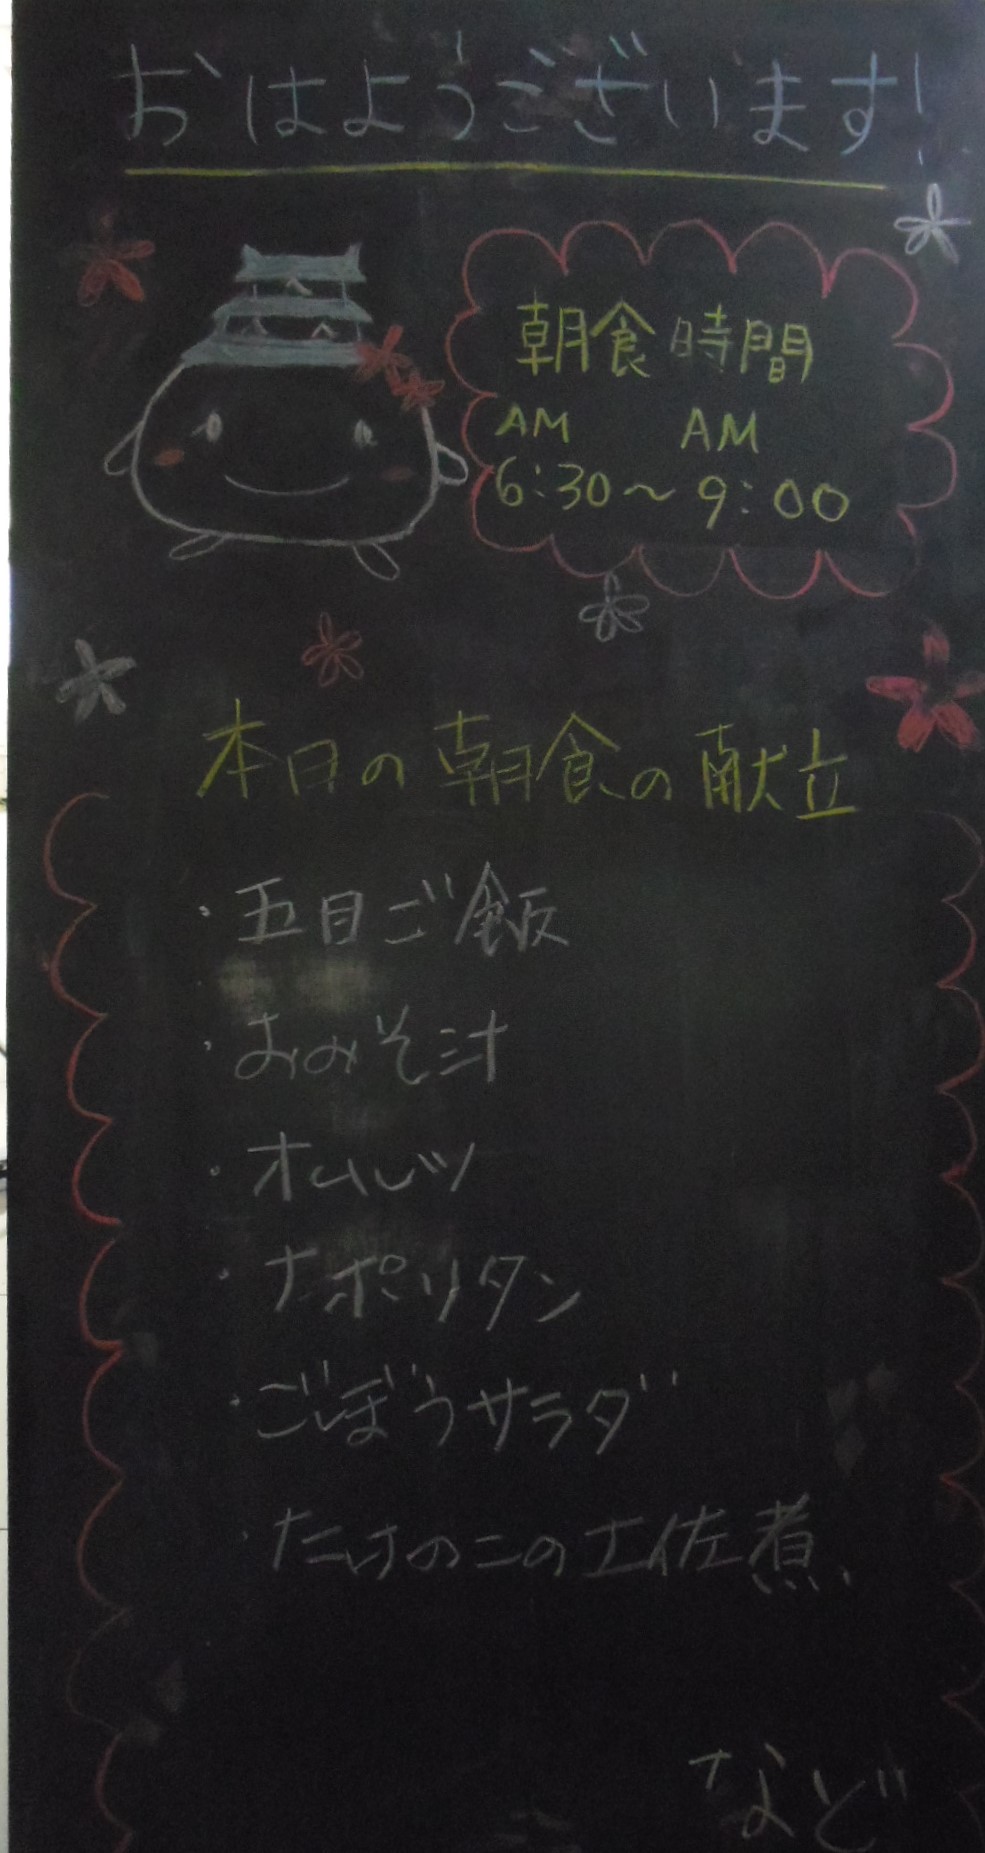 おはようございます!
朝食時間
AM AM
6:30〜9:00
本日の朝食の献立
・五目ご飯
・おみそ汁
・オムレツ
・ナポリタン
・ごぼうサラダ
・たけのこの土佐煮
など